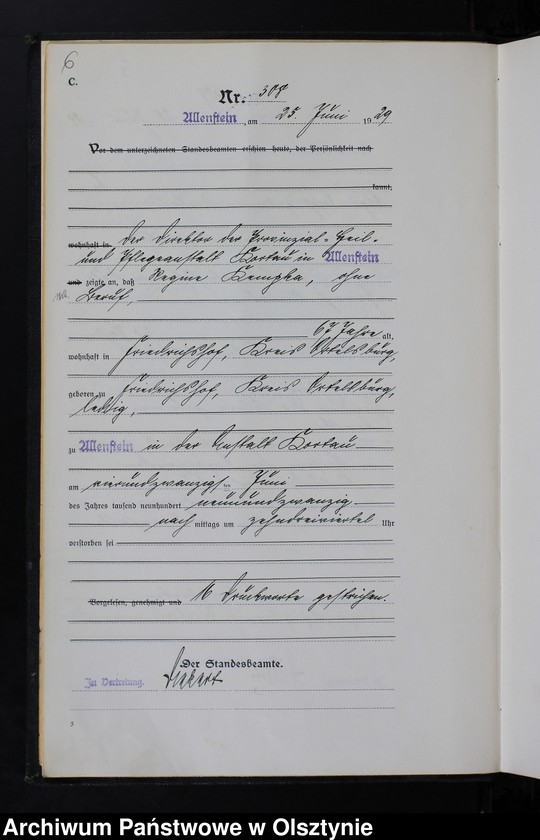 6
C.
Nr. 508
Allenstein, am 25. Juni 1929
Vor dem unterzeichneten Standesbeamten erschien heute, der Persönlichkeit nach
kannt,
wohnhaft in Der Direktor der Provinzial-Heil-
und Pflegeanstalt Kortau in Allenstein
und zeigte an, daß Regine Kempka, ohne
Beruf,
67 Jahre alt,
wohnhaft in Friedrichshof, Kreis Ortelsburg,
geboren zu Friedrichshof, Kreis Ortelsburg,
ledig,
zu Allenstein in der Anstalt Kortau
am vierundzwanzigsten Juni
des Jahres tausend neunhundert neunundzwanzig
nach mittags um zehndreiviertel Uhr
verstorben sei
Vorgelesen, genehmigt und 16 Druckworte gestrichen.
Der Standesbeamte.
In Vertretung.
Archiwum Państwowe w Olsztynie